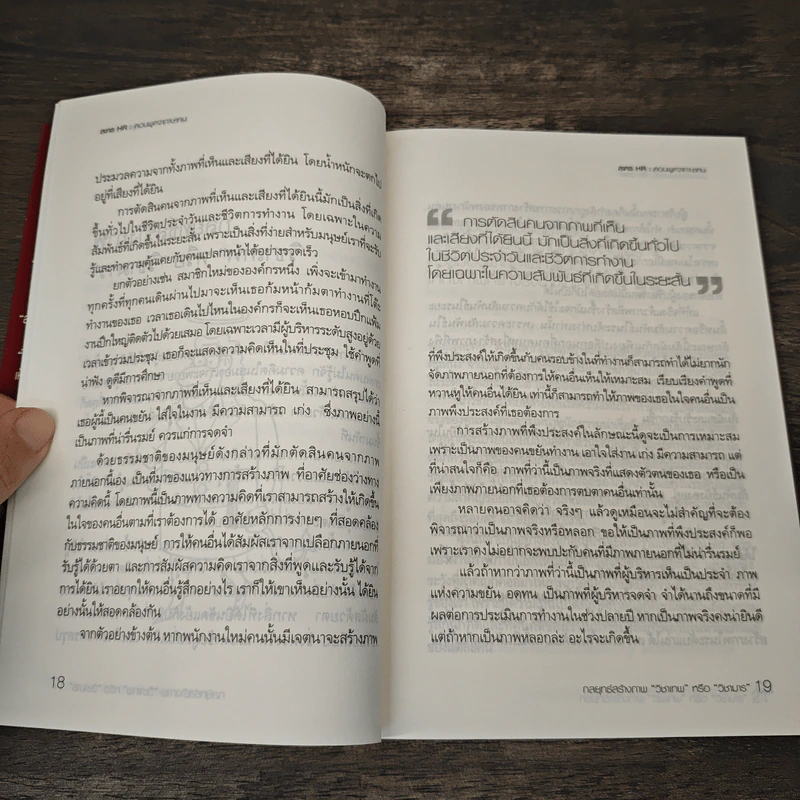 ละคร HR :
ประมวลความจากทั้งภาพที่เห็นและเสียงที่ได้ยิน โดยน้ำหนักจะตกไป
อยู่ที่เสียงที่ได้ยิน
การตัดสินคนจากภาพที่เห็นและเสียงที่ได้ยินนี้มักเป็นสิ่งที่เกิด
ขึ้นทั่วไปในชีวิตประจำวันและชีวิตการทำงาน โดยเฉพาะในความ
สัมพันธ์ที่เกิดขึ้นในระยะสั้น เพราะเป็นสิ่งที่ง่ายสำหรับมนุษย์เราที่จะรับ
รู้และทำความคุ้นเคยกับคนแปลกหน้าได้อย่างรวดเร็ว
ยกตัวอย่างเช่น สมาชิกใหม่ขององค์กรหนึ่ง เพิ่งจะเข้ามาทำงาน
ทุกครั้งที่ทุกคนเดินผ่านไปมาจะเห็นเธอก้มหน้าก้มตาทำงานที่โต๊ะ
ทำงานของเธอ เวลาเธอเดินไปไหนในองค์กรก็จะเห็นเธอหอบปึกแฟ้ม
งานปึกใหญ่ติดตัวไปด้วยเสมอ โดยเฉพาะเวลามีผู้บริหารระดับสูงอยู่ด้วย
เวลาเข้าร่วมประชุม เธอก็จะแสดงความคิดเห็นในที่ประชุม ใช้คำพูดที่
น่าฟัง ดูดีมีการศึกษา
หากพิจารณาจากภาพที่เห็นและเสียงที่ได้ยิน สามารถสรุปได้ว่า
เธอผู้นี้เป็นคนขยัน ใส่ใจในงาน มีความสามารถ เก่ง ซึ่งภาพอย่างนี้
เป็นภาพที่น่ารื่นรมย์ ควรแก่การจดจำ
ด้วยธรรมชาติของมนุษย์ดังกล่าวที่มักตัดสินคนจากภาพ
ภายนอกนี้เอง เป็นที่มาของแนวทางการสร้างภาพ ที่อาศัยช่องว่างทาง
ความคิดนี้ โดยภาพนี้เป็นภาพทางความคิดที่เราสามารถสร้างให้เกิดขึ้น
ในใจของคนอื่นตามที่เราต้องการได้ อาศัยหลักการง่ายๆ ที่สอดคล้อง
กับธรรมชาติของมนุษย์ การให้คนอื่นได้สัมผัสเราจากเปลือกภายนอกที่
รับรู้ได้ด้วยตา และการสัมผัสความคิดเราจากสิ่งที่พูดและรับรู้ได้จาก
การได้ยิน เราอยากให้คนอื่นรู้สึกอย่างไร เราก็ให้เขาเห็นอย่างนั้น ได้ยิน
อย่างนั้นให้สอดคล้องกัน
จากตัวอย่างข้างต้น หากพนักงานใหม่คนนั้นมีเจตนาจะสร้างภาพ
18
ละคร HR :
“ การตัดสินคนจากภาพที่เห็น
และเสียงที่ได้ยินนี้ มักเป็นสิ่งที่เกิดขึ้นทั่วไป
ในชีวิตประจำวันและชีวิตการทำงาน
โดยเฉพาะในความสัมพันธ์ที่เกิดขึ้นในระยะสั้น ”
ที่พึงประสงค์ให้เกิดขึ้นกับคนรอบข้างในที่ทำงานก็สามารถทำได้ไม่ยากนัก
จัดภาพภายนอกที่ต้องการให้คนอื่นเห็นให้เหมาะสม เรียบเรียงคำพูดที่
หวานหูให้คนอื่นได้ยิน เท่านี้ก็สามารถทำให้ภาพของเธอในใจคนอื่นเป็น
ภาพพึงประสงค์ที่เธอต้องการ
การสร้างภาพที่พึงประสงค์ในลักษณะนี้ดูจะเป็นการเหมาะสม
เพราะเป็นภาพของคนขยันทำงาน เอาใจใส่งาน เก่ง มีความสามารถ แต่
ที่น่าสนใจก็คือ ภาพที่ว่านี้เป็นภาพจริงที่แสดงตัวตนของเธอ หรือเป็น
เพียงภาพภายนอกที่เธอต้องการตบตาคนอื่นเท่านั้น
หลายคนอาจคิดว่า จริงๆ แล้วดูเหมือนจะไม่สำคัญที่จะต้อง
พิจารณาว่าเป็นภาพจริงหรือหลอก ขอให้เป็นภาพที่พึงประสงค์ก็พอ
เพราะเราคงไม่อยากจะพบปะกับคนที่มีภาพภายนอกที่ไม่น่ารื่นรมย์
แล้วถ้าหากว่าภาพที่ว่านี้เป็นภาพที่ผู้บริหารเห็นเป็นประจำ ภาพ
แห่งความขยัน อดทน เป็นภาพที่ผู้บริหารจดจำ จำได้นานถึงขนาดที่มี
ผลต่อการประเมินการทำงานในช่วงปลายปี หากเป็นภาพจริงคงน่ายินดี
แต่ถ้าหากเป็นภาพหลอกล่ะ อะไรจะเกิดขึ้น
กลยุทธ์สร้างภาพ “วิชาเทพ” หรือ “วิชามาร” 19